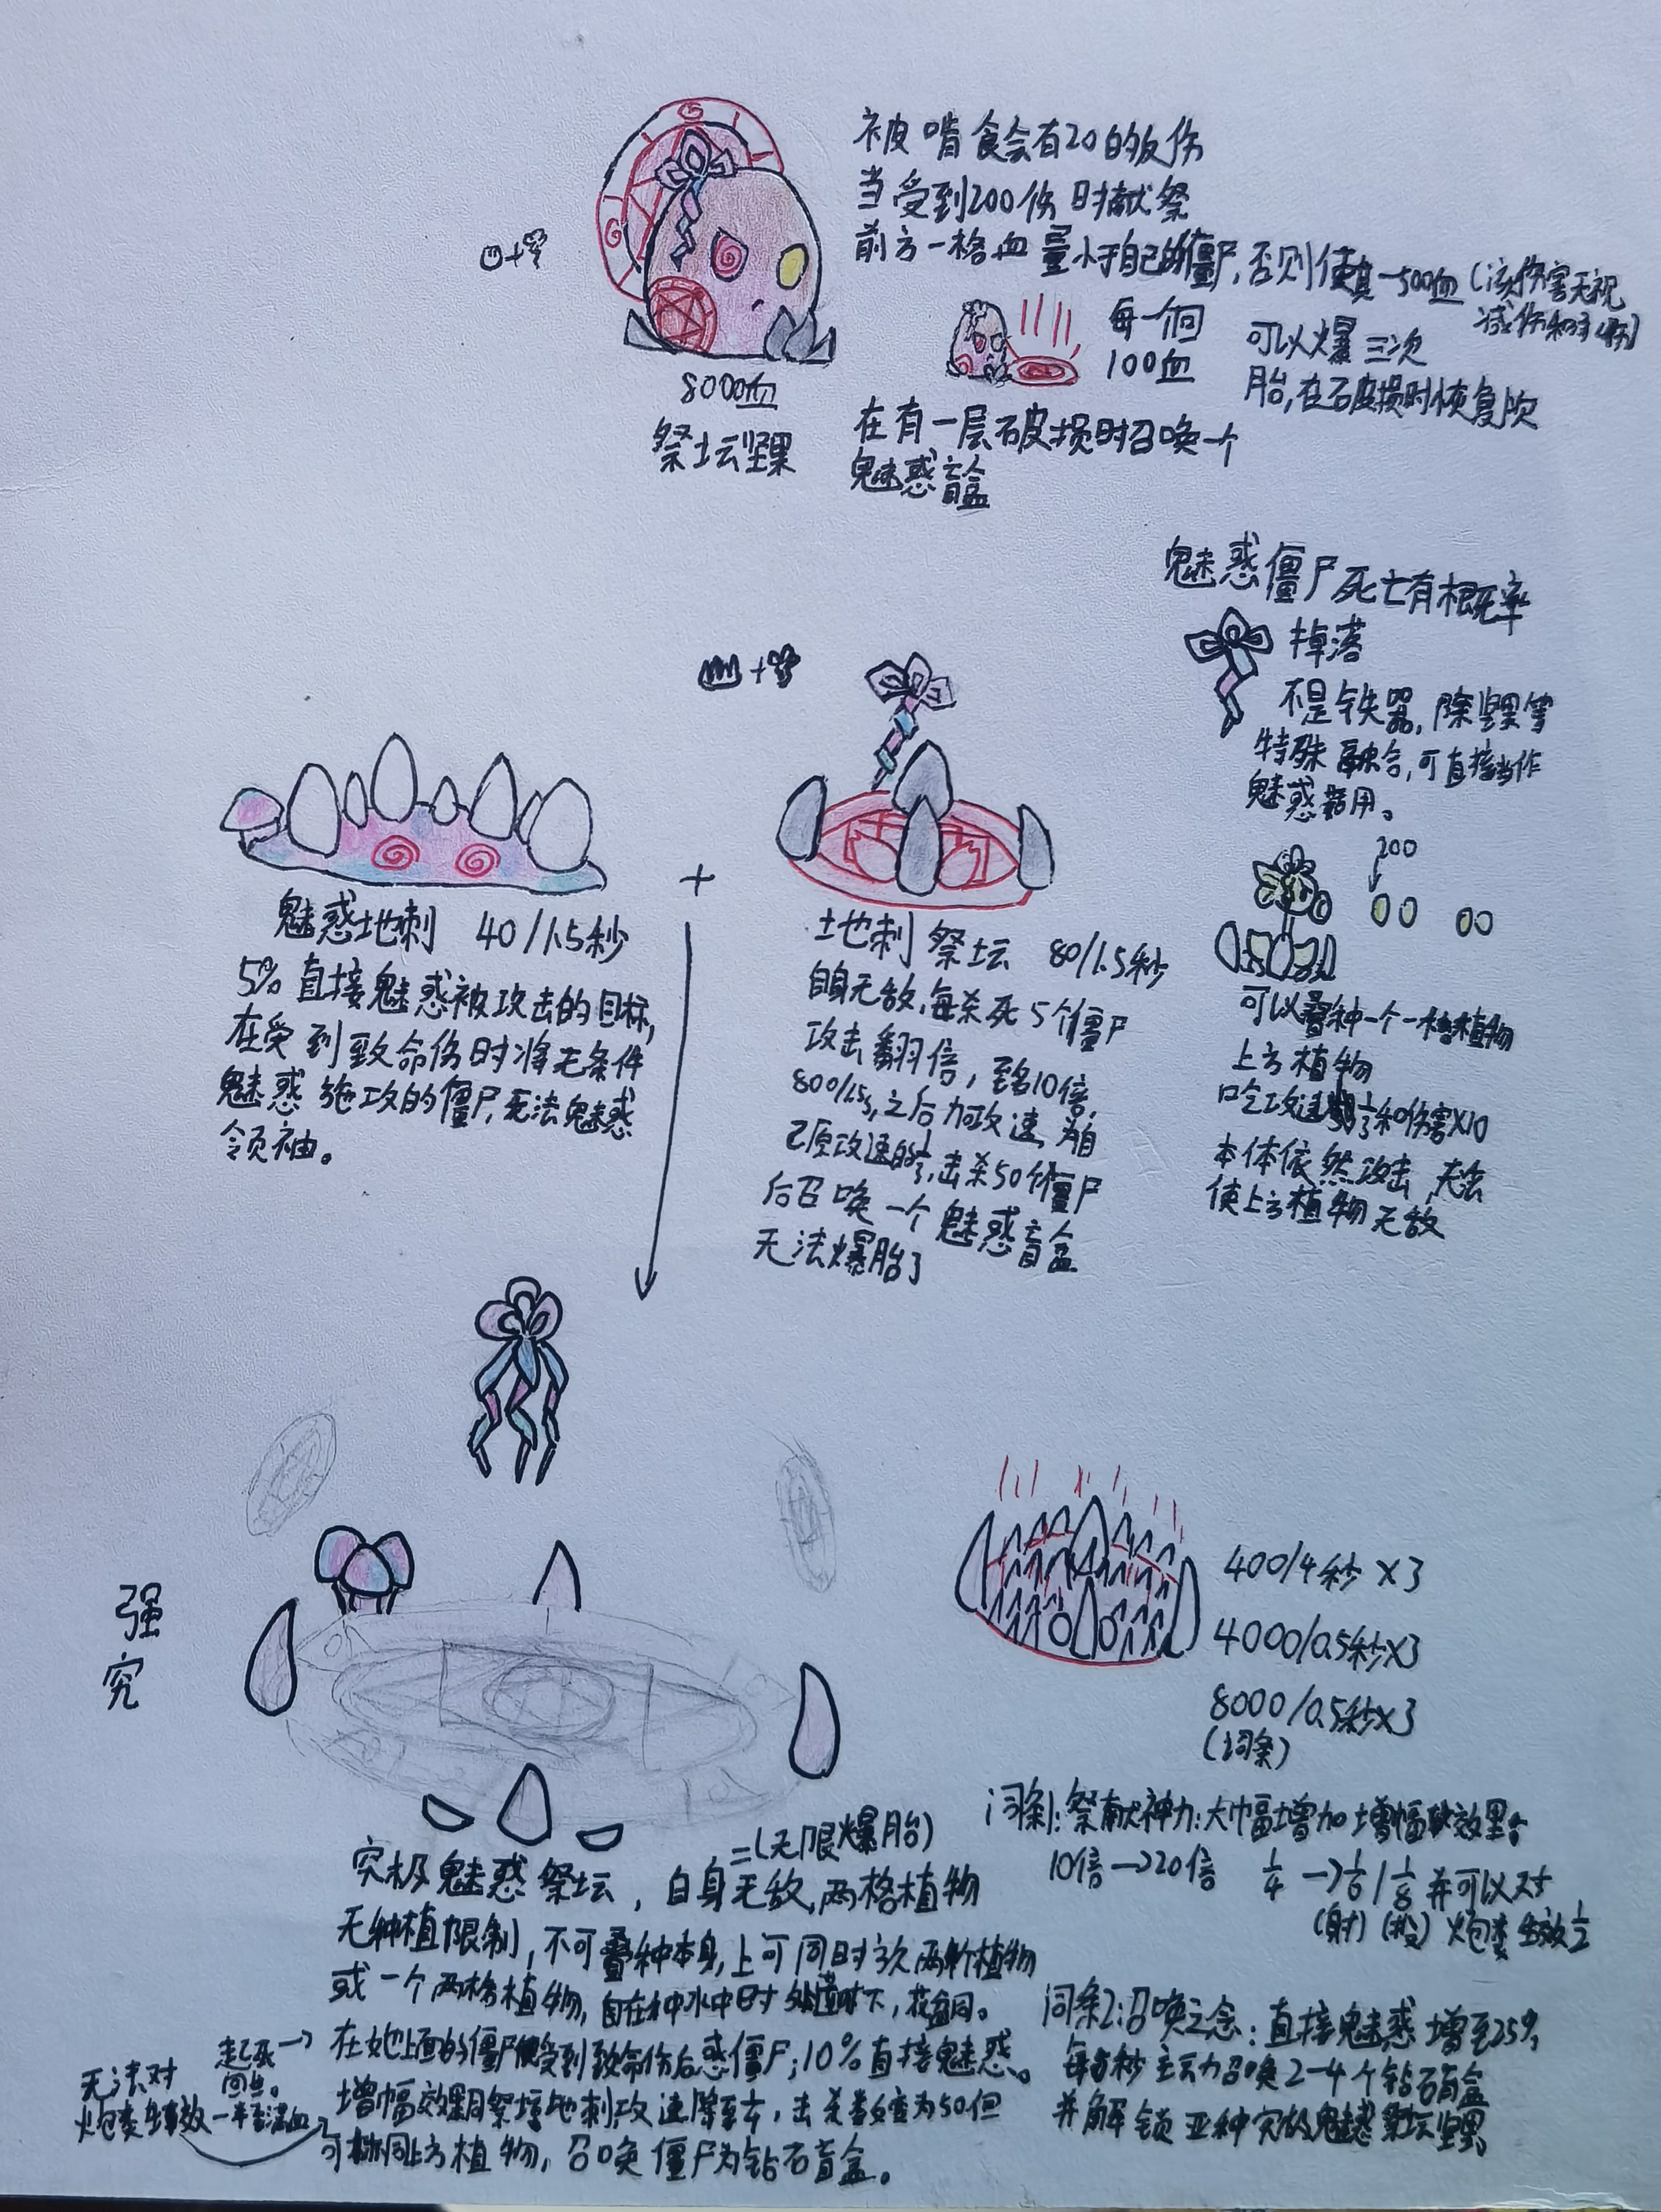 被啃食会有20的反伤
当受到200伤时献祭
前方一格血量小于自己的僵尸,否则使其-500血(该伤害无视
减伤和
每一个
100血
可以爆三次
胎,在破损时恢复
8000血
祭坛坚果
在有一层破损时召唤一个
魅惑盲盒
魅惑僵尸死亡有概率
掉落
不是铁器,除坚果等
特殊融合,可直接当作
魅惑菇用。
魅惑地刺 40/1.5秒
5%直接魅惑被攻击的目标,
在受到致命伤时将无条件
魅惑施攻的僵尸,无法魅惑
领袖。
+
地刺祭坛 80/1.5秒
自身无敌,每杀死5个僵尸
攻击翻倍,至多10倍,
800/1.5s,之后加攻速,为自
己原攻速的1/3,击杀50个僵尸
后召唤一个魅惑盲盒
无法爆胎了
200
可以叠种一个一格植物
上方植物
吃攻速和伤害X10
本体依然攻击,无法
使上方植物无敌
强
究
400/4秒 X3
4000/0.5秒X3
8000/0.5秒X3
(词条)
究极魅惑祭坛,自身无敌,两格植物
=(无限爆胎)
无种植限制,不可叠种本身,上可同时 两个植物
或一个两格植物,自在种水中时 下,花盆同。
在她上面的僵尸受到致命伤后惑僵尸;10%直接魅惑。
增幅效果同祭坛地刺攻速降至,击杀数变为50但
可 同上方植物,召唤僵尸为钻石盲盒。
起死→
回生。
一半满血
无法对
炮类生效
词条1:祭献神力:大幅增加增幅效果
10倍→20倍 1/4→1/6/1/8并可以对
(射)(投)炮类生效1/2
词条2:召唤之念:直接魅惑增至25%,
每 秒主动召唤2-4个钻石盲盒
并解锁亚种究极魅惑祭坛坚果